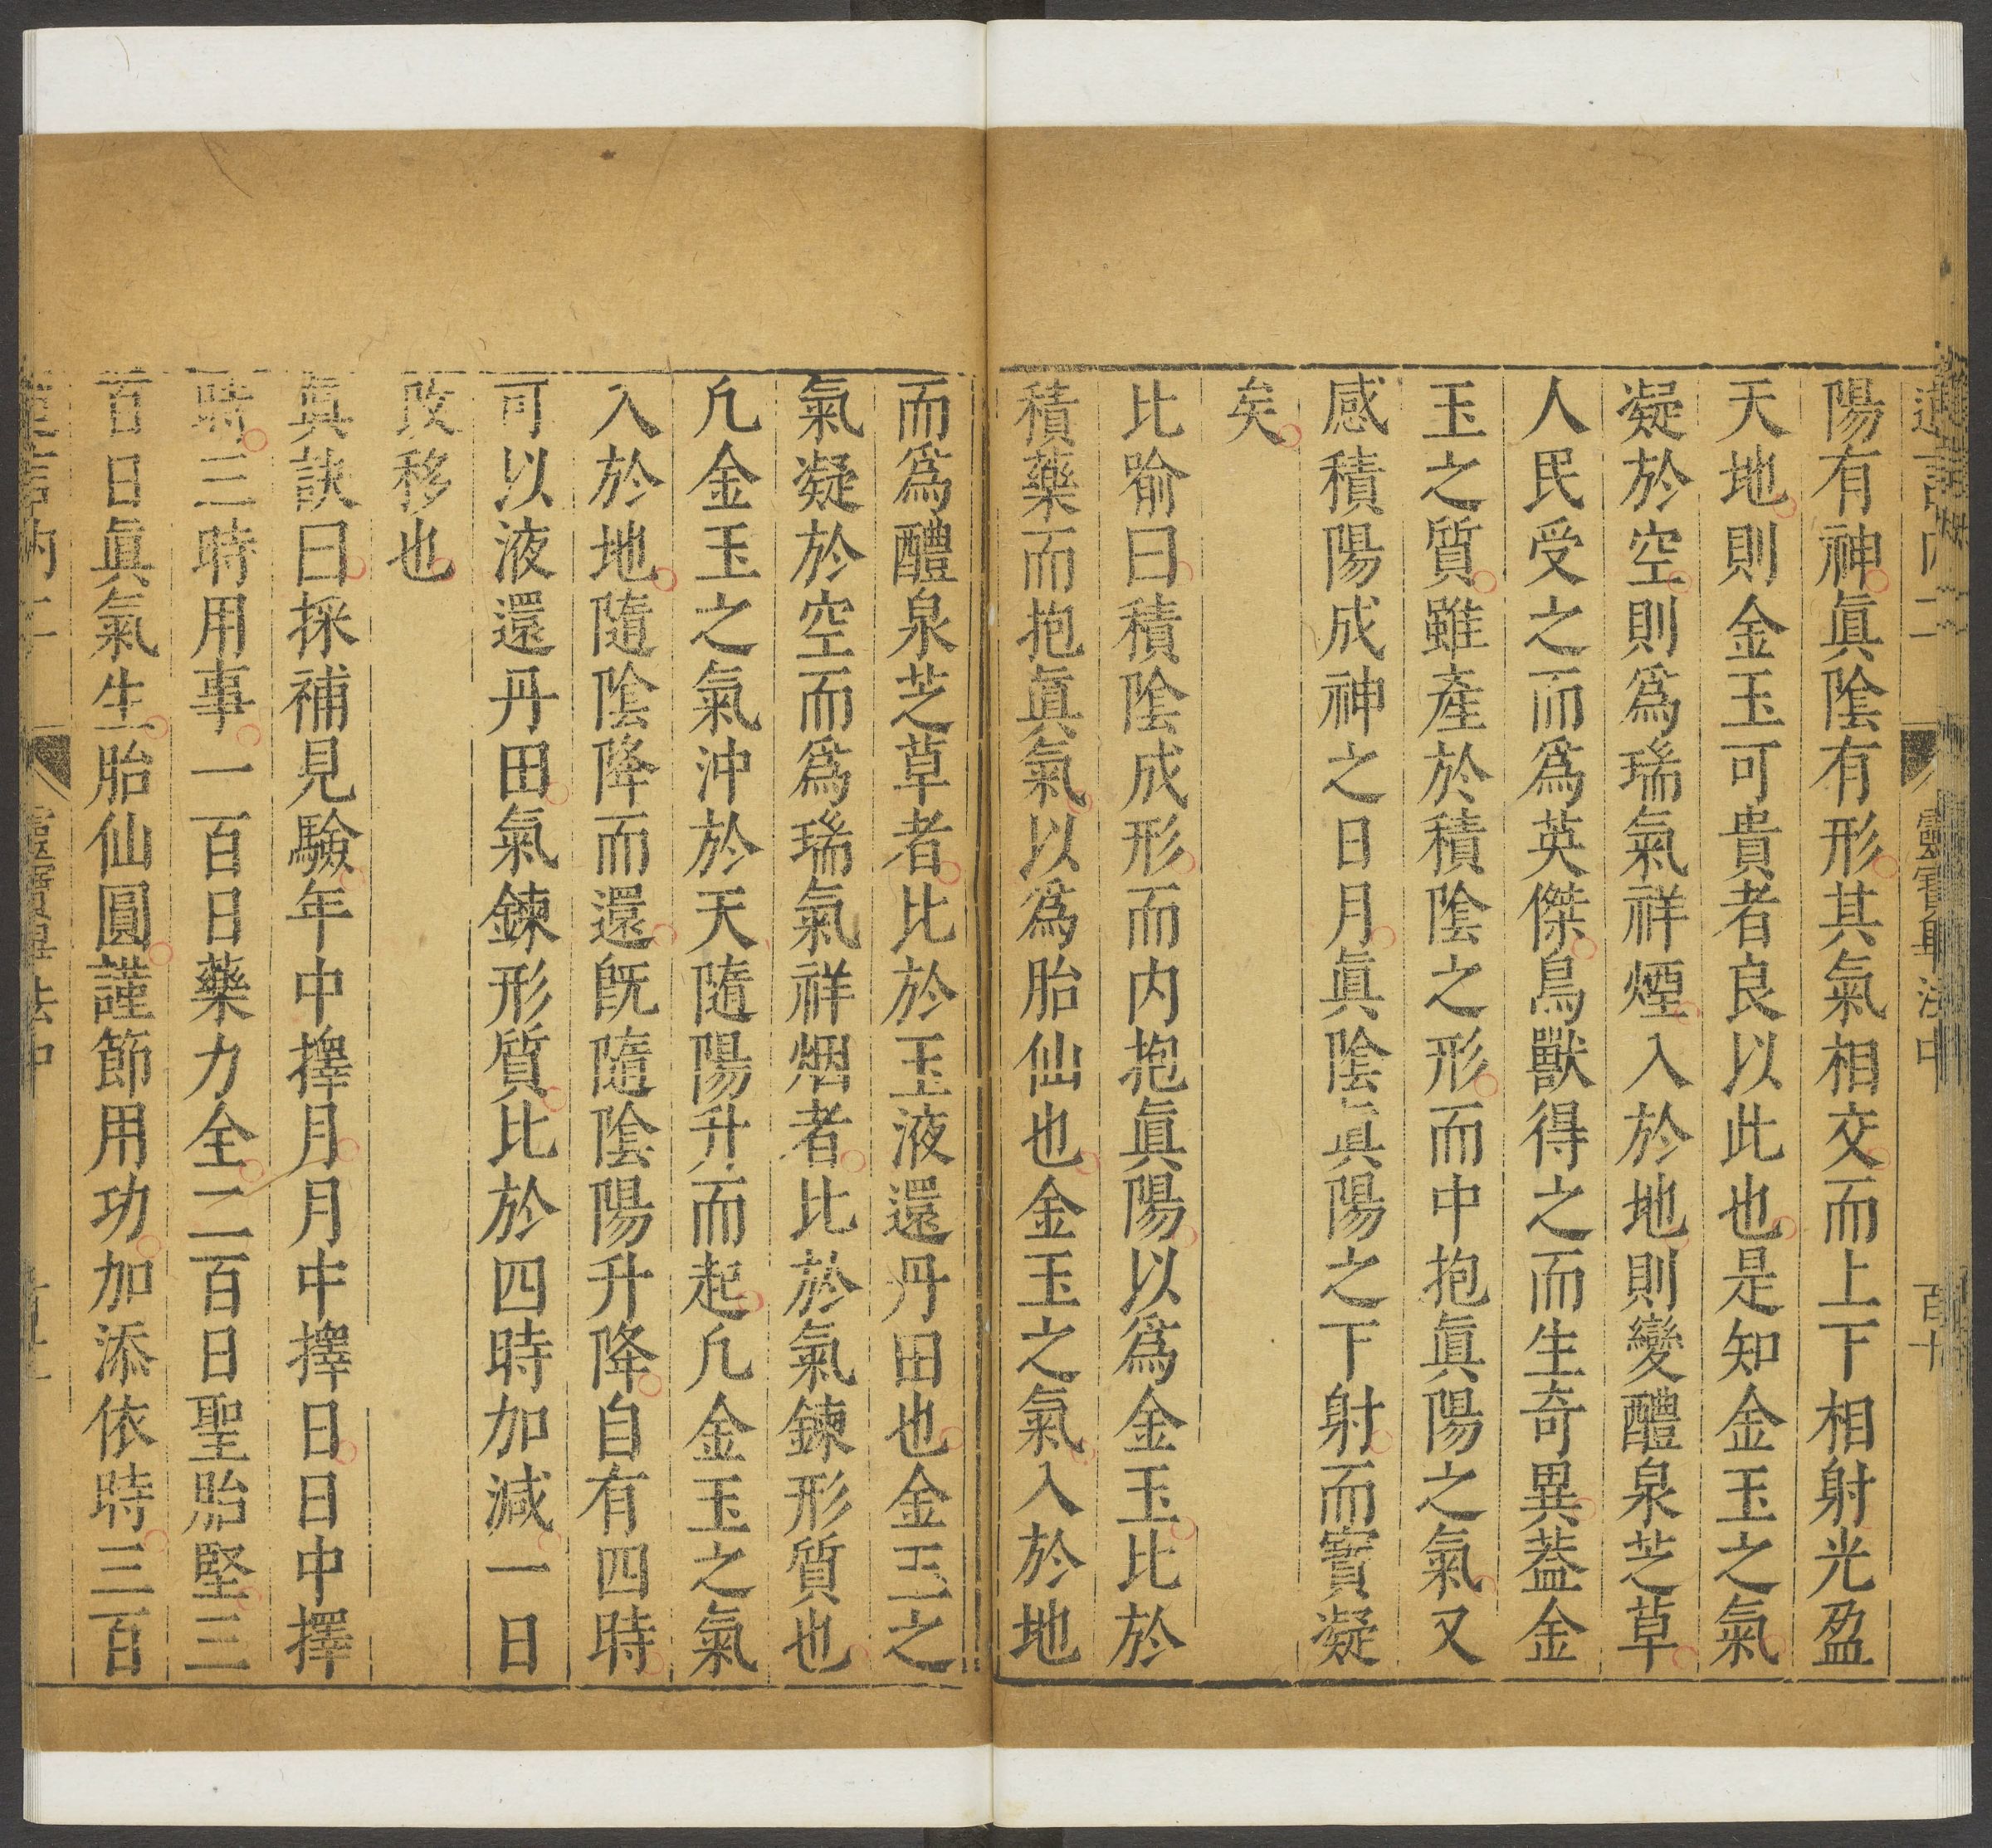 靈寶畢法中
百十
陽有神眞陰有形其氣相交而上下相射光盈
天地則金玉可貴者良以此也是知金玉之氣
凝於空則爲瑞氣祥煙入於地則變醴泉芝草
人民受之而爲英傑鳥獸得之而生奇異葢金
玉之質雖產於積陰之形而中抱眞陽之氣又
感積陽成神之日月眞陰眞陽之下射而寶凝
矣
比喻曰積陰成形而內抱眞陽以爲金玉比於
積藥而抱眞氣以爲胎仙也金玉之氣入於地
而爲醴泉芝草者比於玉液還丹田也金玉之
氣凝於空而爲瑞氣祥烟者比於氣鍊形質也
凢金玉之氣沖於天隨陽升而起凢金玉之氣
入於地隨陰降而還既隨陰陽升降自有四時
可以液還丹田氣鍊形質比於四時加減一日
改移也
眞訣曰採補見驗年中擇月月中擇日日中擇
時三時用事一百日藥力全二百日聖胎堅三
百日眞氣生胎仙圓謹節用功加添依時三百
靈寶畢法中